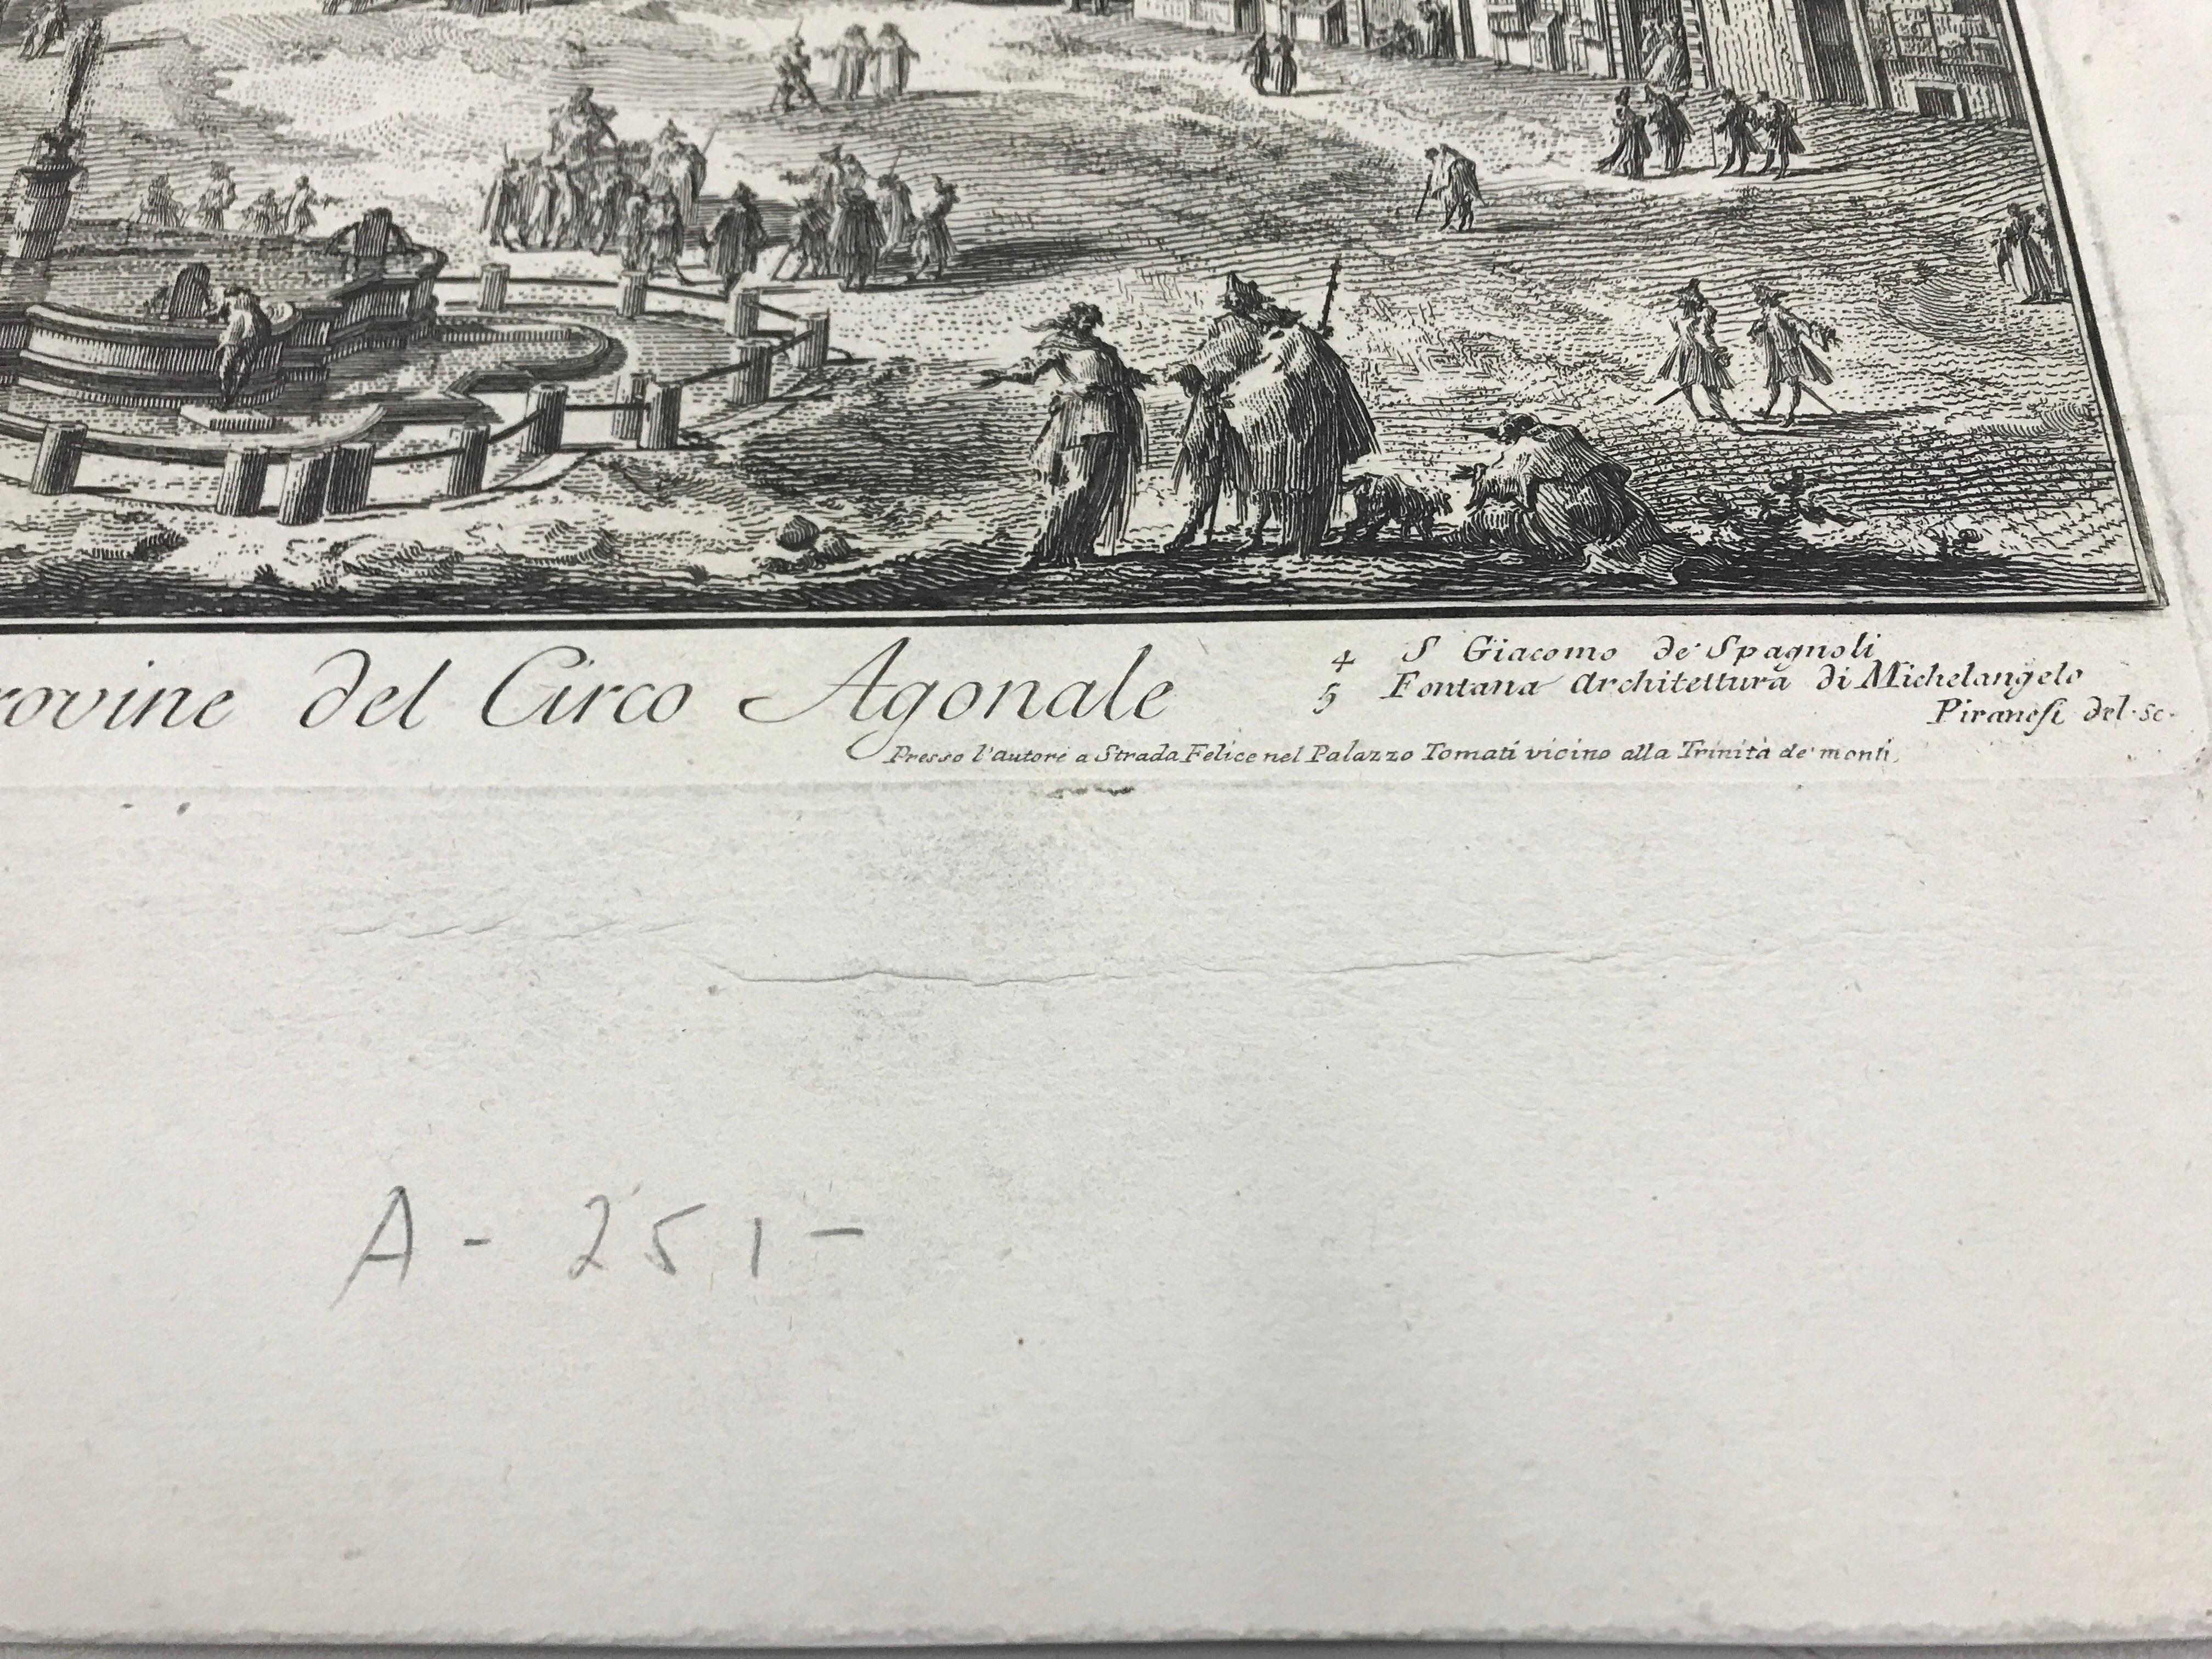 rovine del Circo Agonale
4 S Giacomo de' Spagnoli
5 Fontana Architettura di Michelangelo
Piranesi del. sc.
Presso l'autore a Strada Felice nel Palazzo Tomati vicino alla Trinità de' monti.
A - 251 -